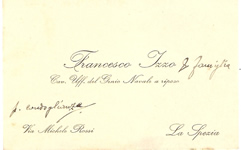 Francesco Izzo & Famiglia
Cav. Uff. del Genio Navale a riposo
p. condoglianze
Via Michele Rossi
La Spezia